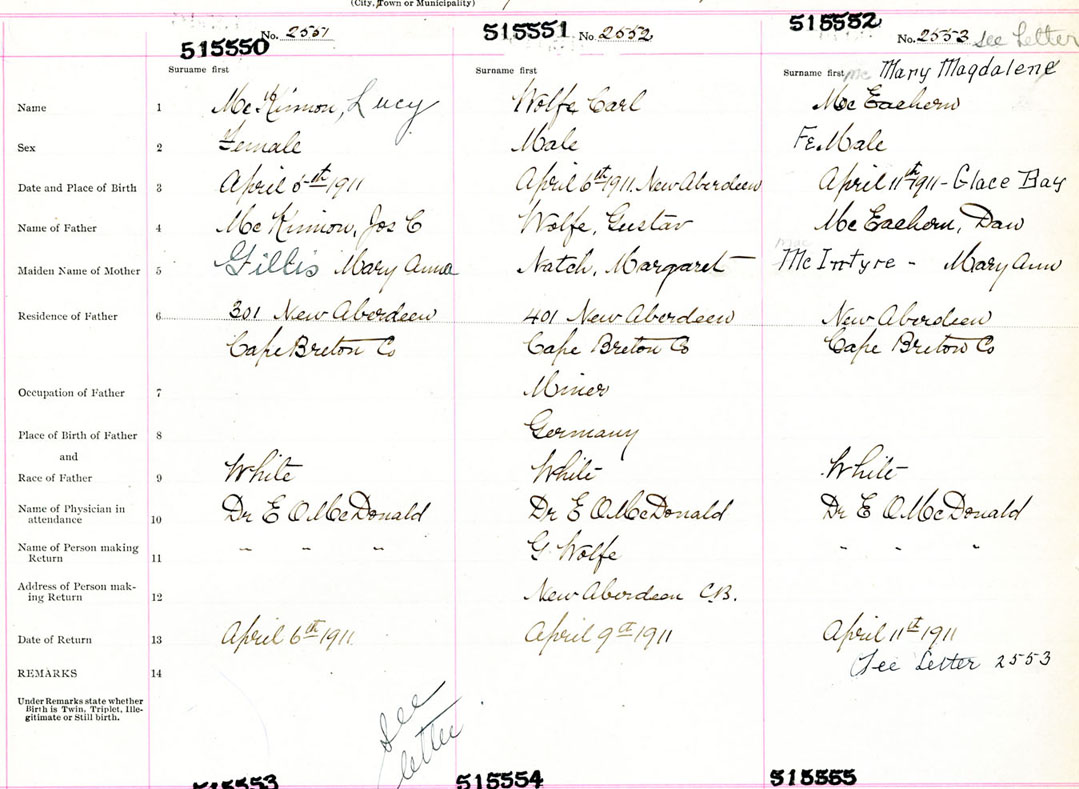 (City, Town or Municipality)
515550 No. 2551
515551 No 2552
515552 No. 2553 see Letter
Surname first
Surname first
Surname first Mc Mary Magdalene
Name 1 McKinnon, Lucy Wolfe Carl McEachern
Sex 2 Female Male FeMale
Date and Place of Birth 3 April 5th 1911 April 6th 1911. New Aberdeen April 11th 1911 - Glace Bay
Name of Father 4 McKinnon, Jos C Wolfe, Gustav McEachern, Dan
Maiden Name of Mother 5 Gillis Mary Anna Natch, Margaret McIntyre - Mary Ann
Residence of Father 6 301 New Aberdeen 401 New Aberdeen New Aberdeen
Cape Breton Co Cape Breton Co Cape Breton Co
Occupation of Father 7 Miner
Place of Birth of Father 8 Germany
and
Race of Father 9 White White White
Name of Physician in attendance 10 Dr E O McDonald Dr E O McDonald Dr E O McDonald
Name of Person making Return 11 " " " G Wolfe " " "
Address of Person making Return 12 New Aberdeen C.B.
Date of Return 13 April 6th 1911. April 9th 1911 April 11th 1911
See Letter 2553
REMARKS 14
Under Remarks state whether
Birth is Twin, Triplet, Ille-
gitimate or Still birth.
See
letter
515553 515554 515555